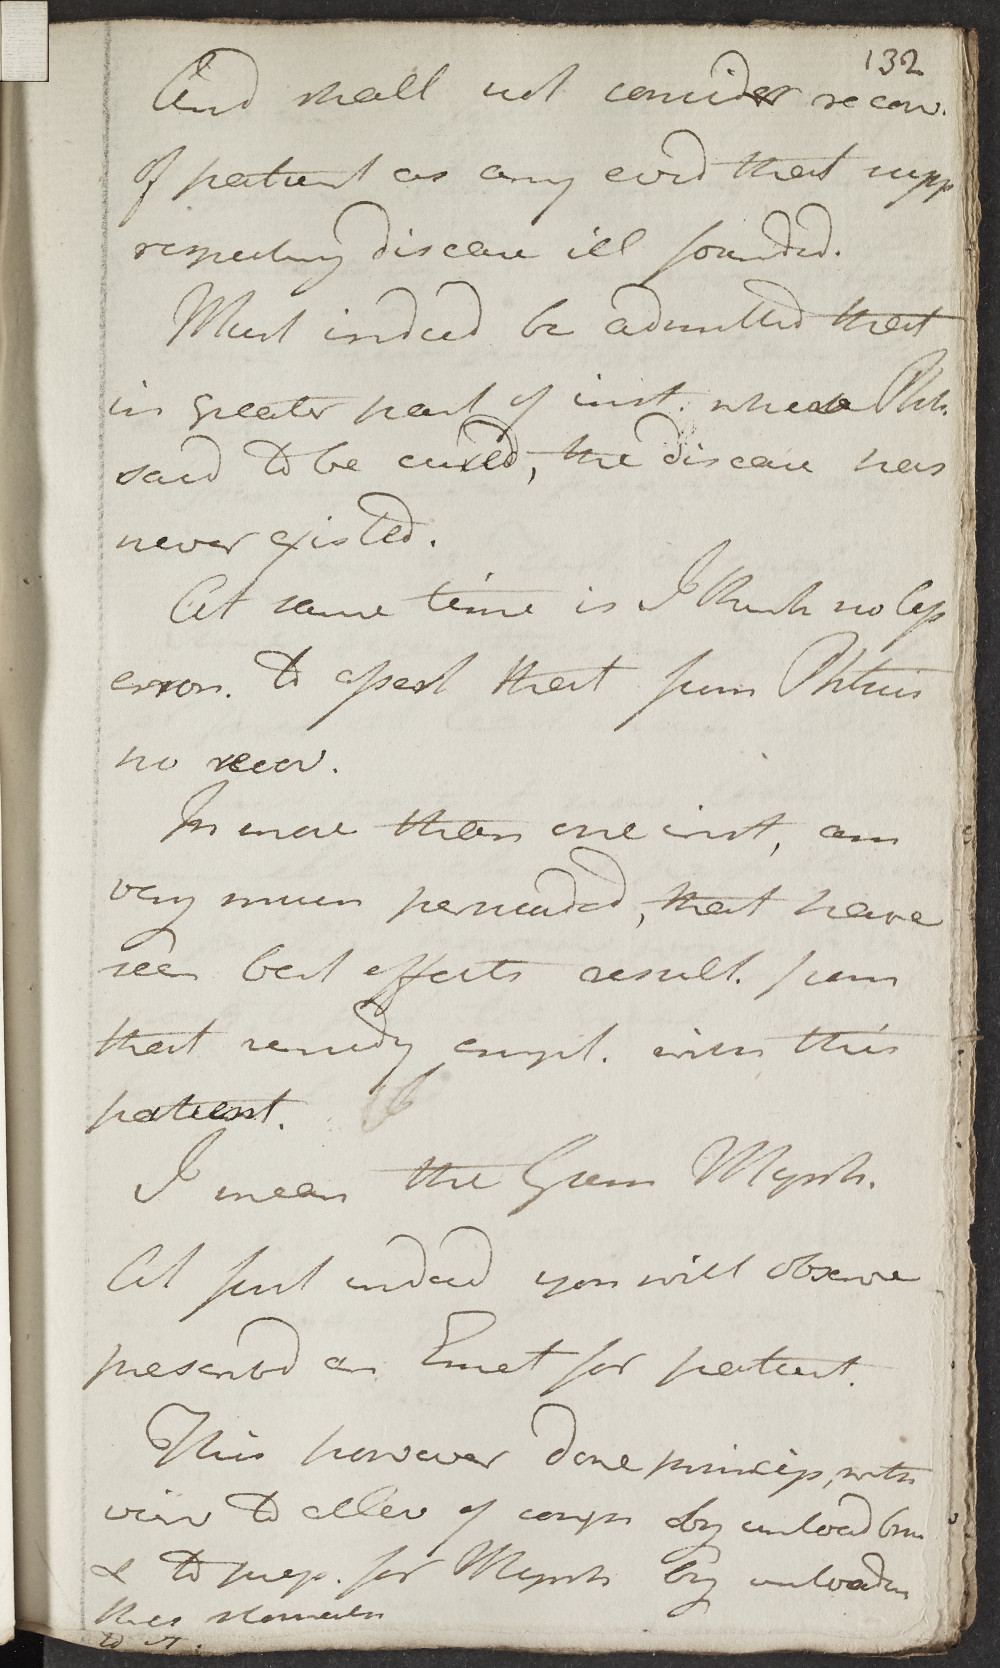 132
And shall not consider recov.
of patient as any evid that supp
respecting disease ill founded.
Must indeed be admitted that
in greater part of inst. where Phth.
said to be cured, the disease has
never existed.
At same time is I think no less
erron. to assert that from Phthisis
no recov.
In more than one inst, am
very much persuaded, that have
seen best effects result. from
that remedy empl. with this
patient.
I mean the Gum Myrrh.
At first indeed you will observe
prescribd an Emet for patient.
This however done princip, with
view to allev of cough by unload
& to prep. for Myrrh by unloadin
stomach